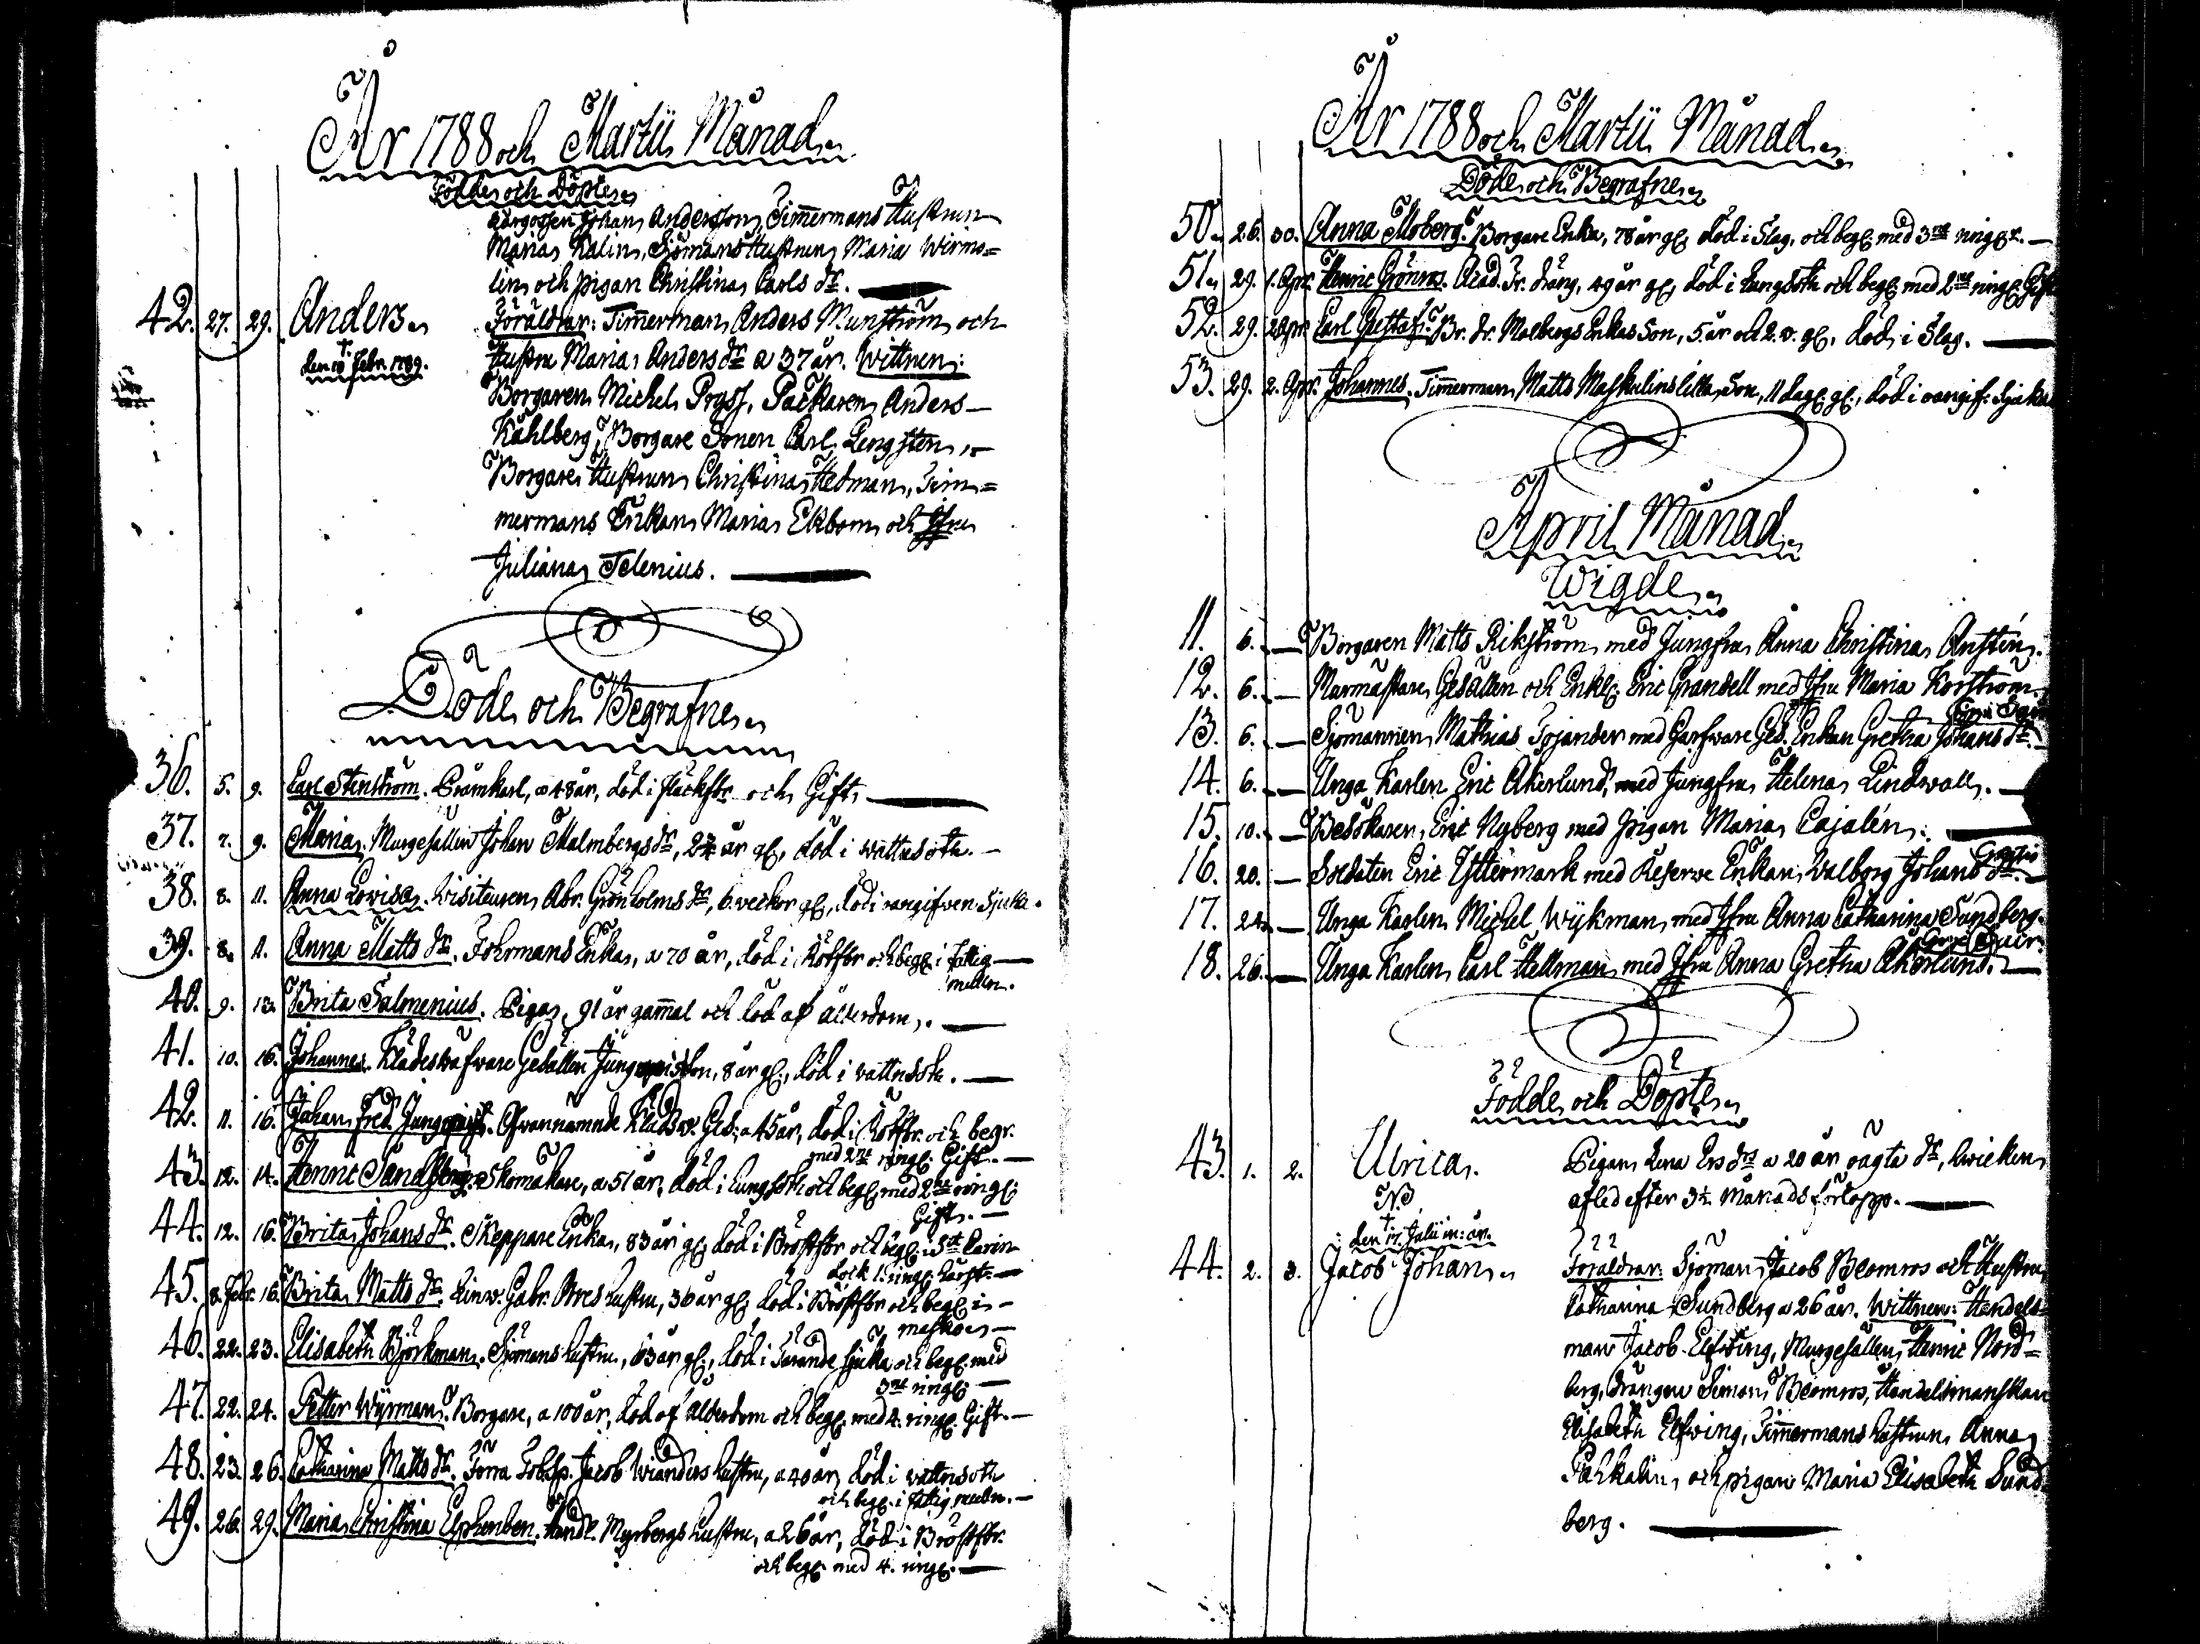 År 1788 och Martii Månad
Födde och Döpte
Johan Andersson, Timmermans Hustrun
Maria Kalin, Sjömans Hustrun Maria Wirmo=
lin och pigan Christina Carls dr.
42. 27. 29. Anders Föräldrar: Timmerman Anders Munström och
den 10 Febr. 1789. Hustru Maria Anders dr a 37 år. Wittnen:
Borgaren Michel Pryss, Packaren Anders
Kåhlberg, Borgare Sonen Carl Lengsten,
Borgare Hustrun Christina Hedman, Tim=
mermans Enkan Maria Ekbom och Jfru
Juliana Telenius.
Döde och Begrafne
36. 5. 9. Carl Stenström. Pråmkarl, a 48 år, död i fläckfbr och Gift
37. 7. 9. Maria. Murgesällen Johan Malmbergs dr, år gl, död i wattusoth.
38. 8. 11. Anna Lovisa. Visiteuren Abr. Grönholms dr, 6. veckor gl, död i oangifven Sjuka.
39. 8. 11. Anna Matts dr. Fohrmans Enka, a 70 år, död i Rötfbr och begl i fattig
medlen.
40. 9. 13. Brita Salmenius. Piga, 91 år gammal och död af ålderdom.
41. 10. 16. Johannes. Klädeswäfware Gesällen son, 8 år gl, död i wattusoth.
42. 11. 16. Johan Fred. Ofvannämnde Klädsw. Ges. a 45 år, död i Rötfbr. och begr.
med 2ne ringl. Gift.
43. 12. 14. Henric Sandberg. Skomakare, a 51 år, död i Lungsoth och begl med 2ne ringl.
Gift.
44. 12. 16. Brita Johans dr. Skeppare Enka, 83 år gl, död i Bröstfbr och begl i St Carin
dock 1. ringl. härst.
45. 8. Febr. 16. Brita Matts dr. Linw. Gabr. hustru, 36 år gl, död i Bröstfbr och begl i
maskoe
46. 22. 23. Elisabeth Björkman. Sjömans hustru, 63 år gl, död i Tärande sjuka och begl med
3ne ringl.
47. 22. 24. Petter Wyrman. Borgare, a 100 år, död af ålderdom och begl med 4. ringl. Gift.
48. 23. 26. Catharina Matts dr. Förra Tobssp. Jacob Wianders hustru, a 40 år, död i wattusoth
och begl i fattig medln.
49. 26. 29. Maria Christina Elphenben. Handl. Myrbergs hustru, a 26 år, död i Bröstfbr.
och begl med 4. ringl.
År 1788 och Martii Månad
Döde och Begrafne
50. 26. 30. Anna Moberg. Borgare Enka, 78 år gl, död i Slag, och begl med 3ne ringgr.
51. 29. 1. Apr. Henric Grönroos. Acad. Tr. dräng, 49 år gl, död i Lungsoth och begl med 2ne ringl. Gift
52. 29. 2 Apr. Carl Gustaf. Br. dr Malbergs Enkas Son, 5. år och 2. v. gl, död i Slag.
53. 29. 2. Apr. Johannes. Timmerman Matts Maskulins lilla Son, 11 dag. gl, död i oangif. sjuka
April Månad
Wigde
11. 6. Borgaren Matts Rikström med Jungfru Anna Christina Anstén.
12. 6. Murmästare Gesällen och Enkl. Eric Grandell med Jfru Maria Korström.
13. 6. Sjömannen Mathias Tojander med Garfware Ges. Enkan Gretha Johans dr.
14. 6. Unga Karlen Eric Åkerlund, med Jungfru Helena Lindwall.
15. 10. Besökaren Eric Nyberg med pigan Maria Cajalén.
16. 20. Soldaten Eric Yttermark med Reserve Enkan Walborg Johans dr.
17. 24. Unga Karlen Michel Wijkman, med Jfru Anna Catharina Sundberg.
18. 26. Unga Karlen Carl Hellman med Jfru Anna Gretha Åkerlund.
Födde och Döpte
43. 1. 2. Ulrica. Pigan Lena Ers drs a 20 år oägta dr, hwilken
NB. afled efter 3½ Månads förlopp.
den 17. Julii in: år.
44. 2. 3. Jacob Johan Föräldrar: Sjöman Jacob Blomros och Hustru
Catharina Sundberg a 26 år. Wittnen: Handels=
man Jacob Elfving, Murgesällen Henric Nord=
berg, drängen Simon Blomros, Handelsmanskan
Elisabeth Elfwing, Timmermans hustrun Anna
Pahkalin, och pigan Maria Elisabeth Sund
berg.